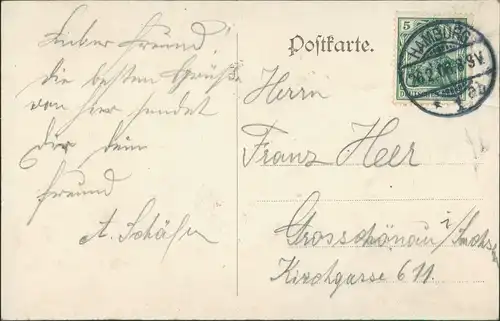 Lieber Freund!
die besten Grüße
von hier sendet
dir dein
Freund
A. Schäfer
Postkarte.
5
HAMBURG
Herrn
Franz Heer
Grosschönau i/Sachsen
Kirchgasse 611.